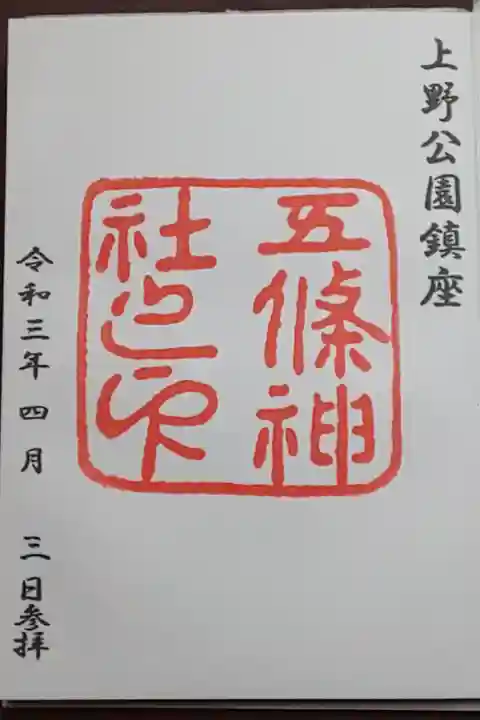 上野公園鎮座
五條神
社之印
令和三年四月 三日参拝